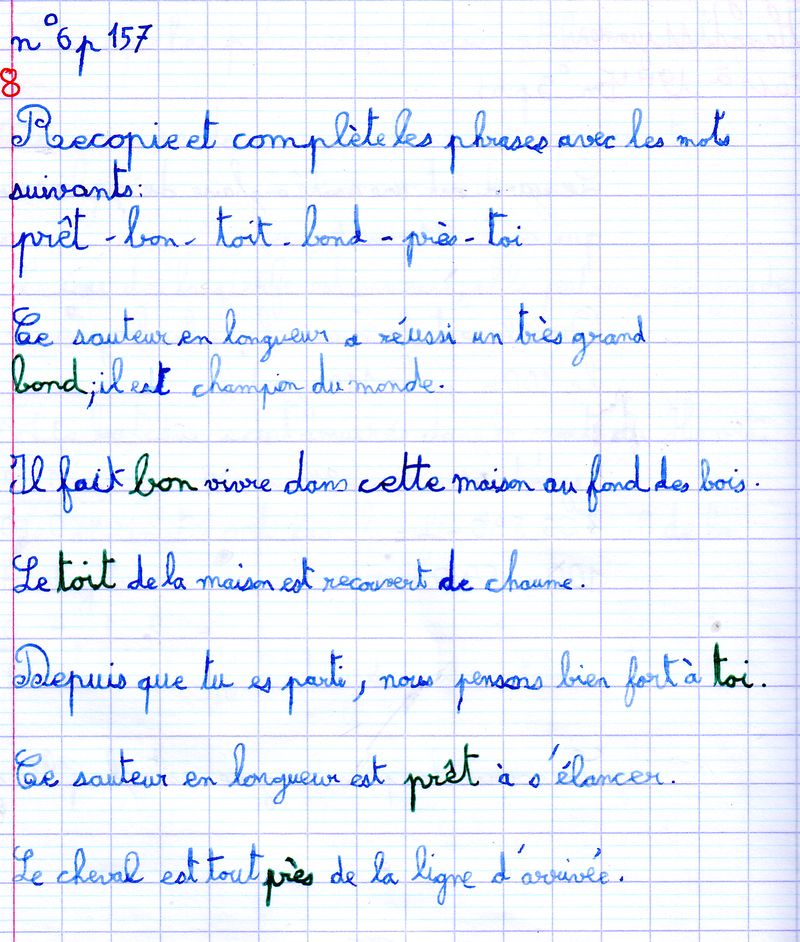 n°6 p 157
8
Recopie et complète les phrases avec les mots
suivants:
prêt - bon - toit - bond - près - toi
Ce sauteur en longueur a réussi un très grand
bond; il est champion du monde.
Il fait bon vivre dans cette maison au fond des bois.
Le toit de la maison est recouvert de chaume.
Depuis que tu es parti, nous pensons bien fort à toi.
Ce sauteur en longueur est prêt à s'élancer.
Le cheval est tout près de la ligne d'arrivée.